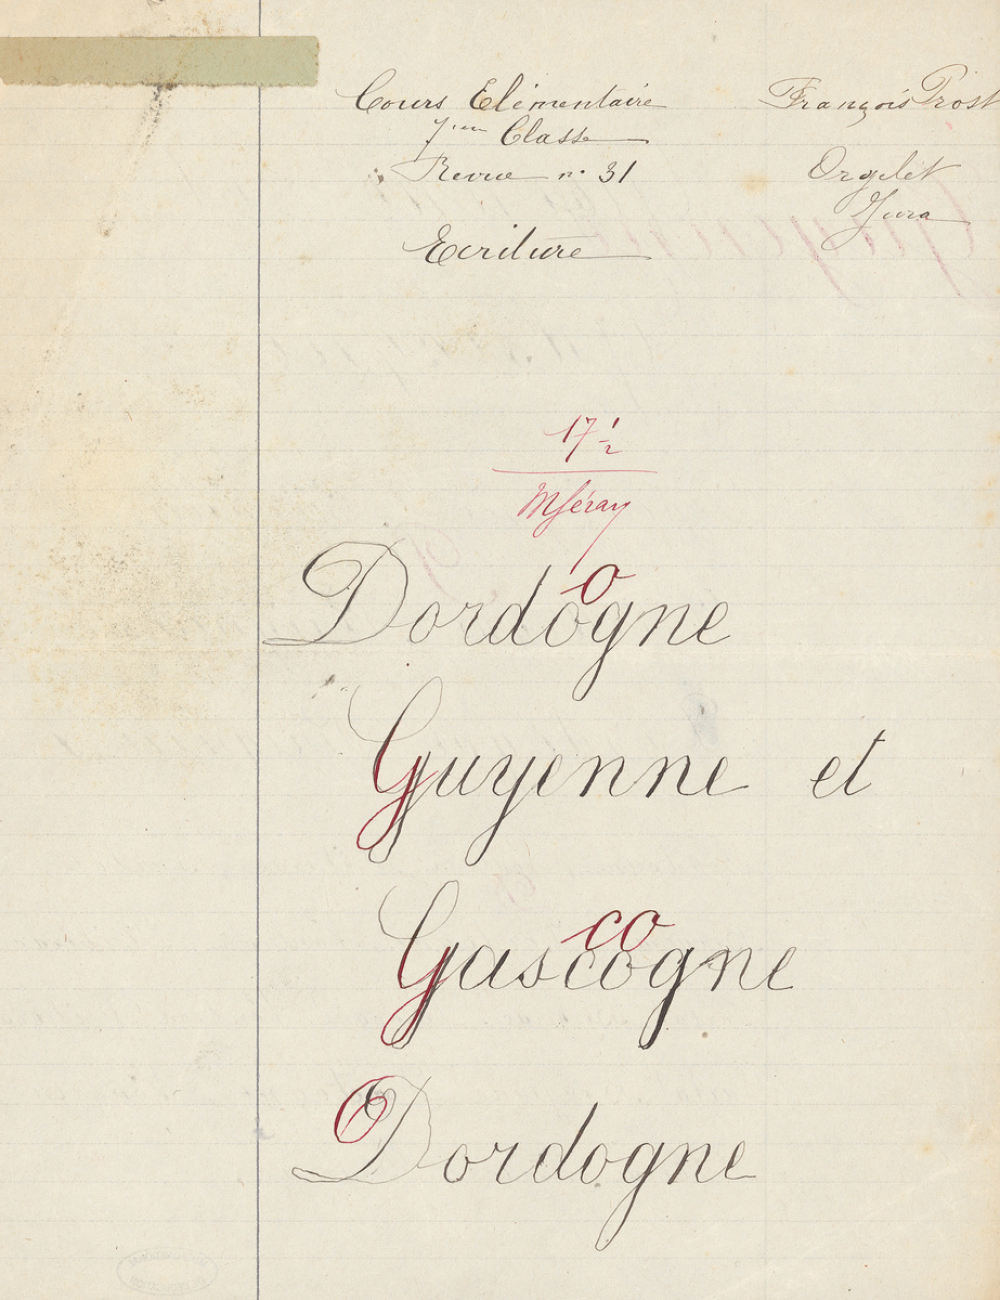 Cours Elémentaire
François Prost
7ème Classe
Revue n° 31
Orgelet
Jura
Ecriture
17 1/2
Dordogne
o
Guyenne et
Gascogne
co
Dordogne